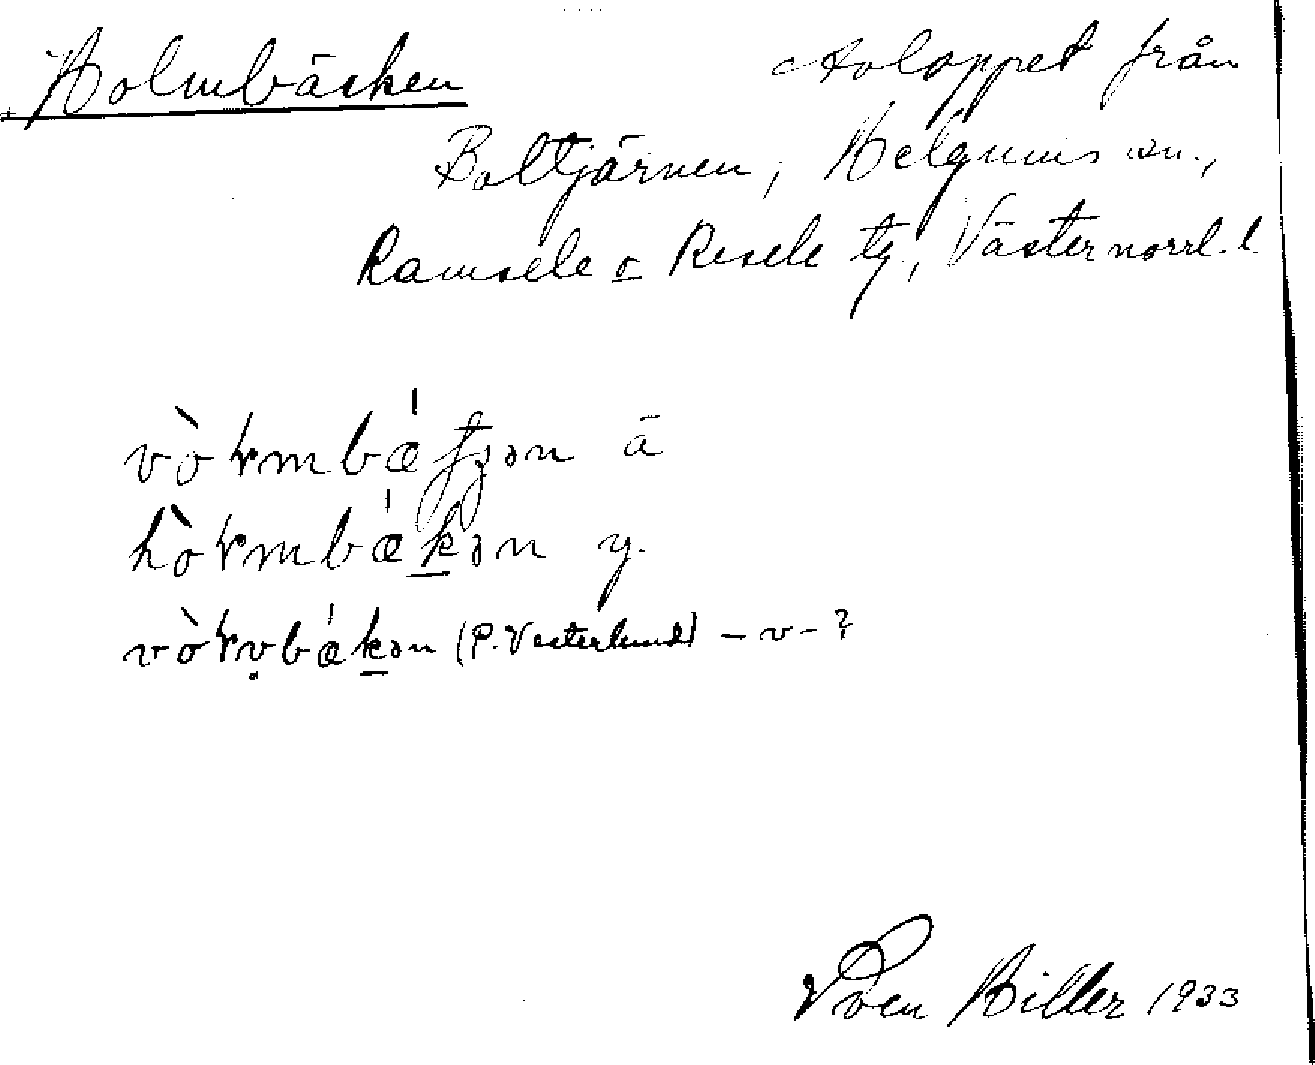 Holmbäcken
Avloppet från
Boltjärnen, Helgums sn.,
Ramsele o Resele tg, Västernorrl. l.
vòɽmbǽʈʂən ä
hòɽmbǽkən y.
vòɽvbǽkən (P. Vesterlund) – v – ?
Sven Hiller 1933